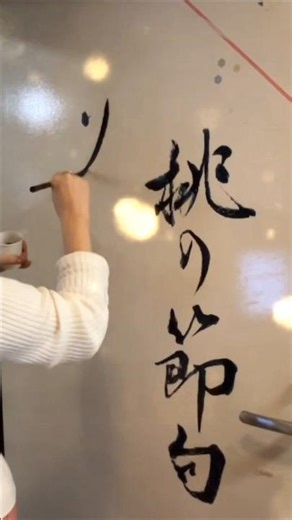 桃の節句